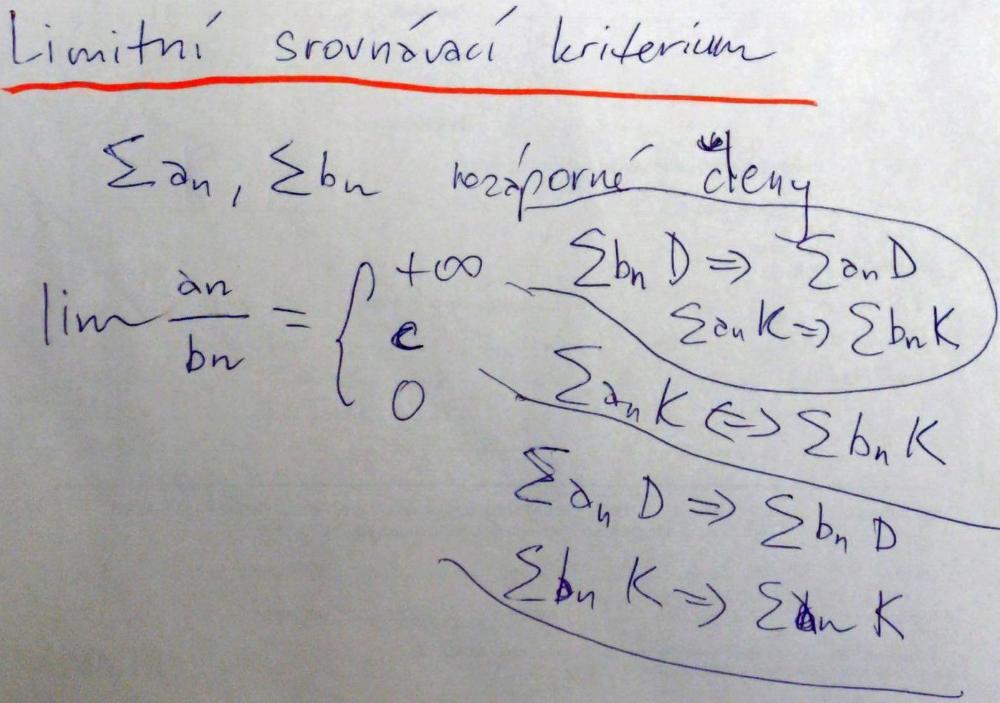 Limitní srovnávací kriterium
Σan, Σbn nezáporné členy
lim an/bn = { +∞ Σbn D ⇒ Σan D
Σan K ⇒ Σbn K
c Σan K ⇔ Σbn K
0 Σan D ⇒ Σbn D
Σbn K ⇒ Σan K